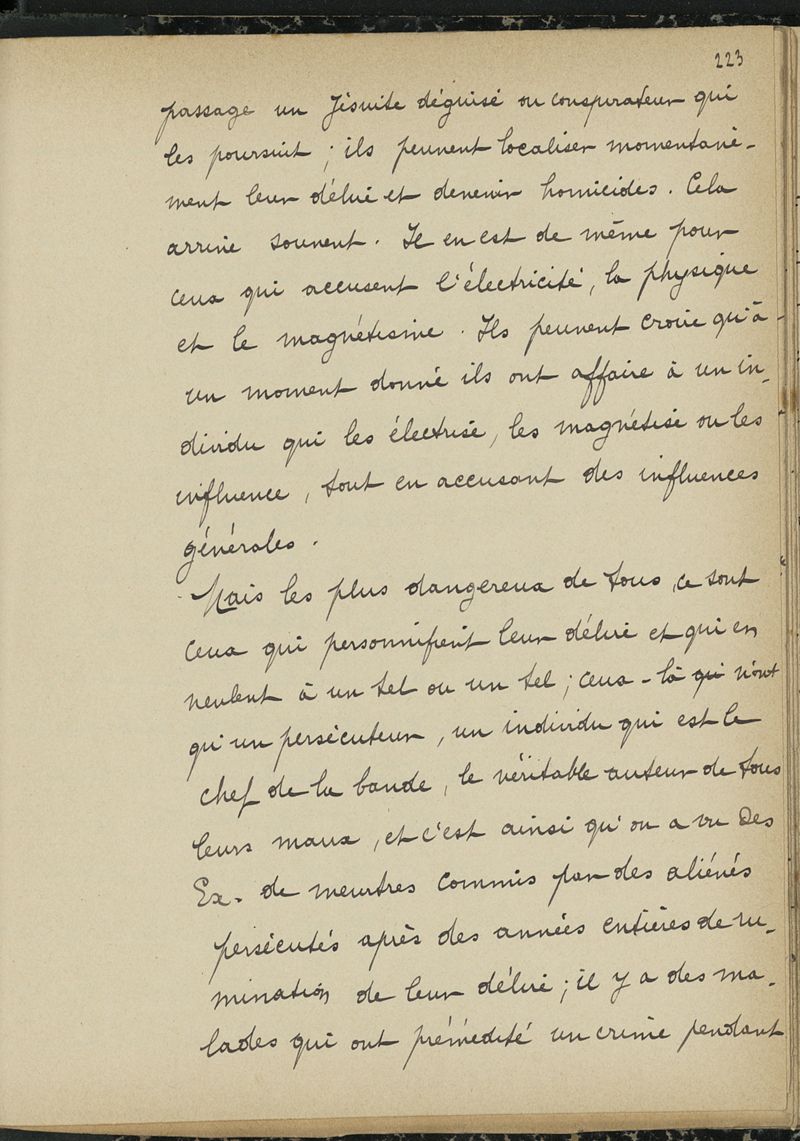 223
passage un Jésuite déguisé ou conspirateur qui
les poursuit ; ils peuvent localiser momentané-
ment leur délire et devenir homicides. Cela
arrive souvent. Il en est de même pour
ceux qui accusent l'électricité, la physique
et le magnétisme. Ils peuvent croire qu'à
un moment donné ils ont affaire à un in-
dividu qui les électrise, les magnétise ou les
influence, tout en accusant des influences
générales.
Mais les plus dangereux de tous, ce sont
ceux qui personnifient leur délire et qui en
veulent à un tel ou un tel ; ceux-là qui n'ont
qu'un persécuteur, un individu qui est le
chef de la bande, le véritable auteur de tous
leurs maux, et c'est ainsi qu'on a vu des
Ex. de meurtres commis par des aliénés
persécutés après des années entières de ru-
mination de leur délire ; il y a des ma-
lades qui ont prémédité un crime pendant